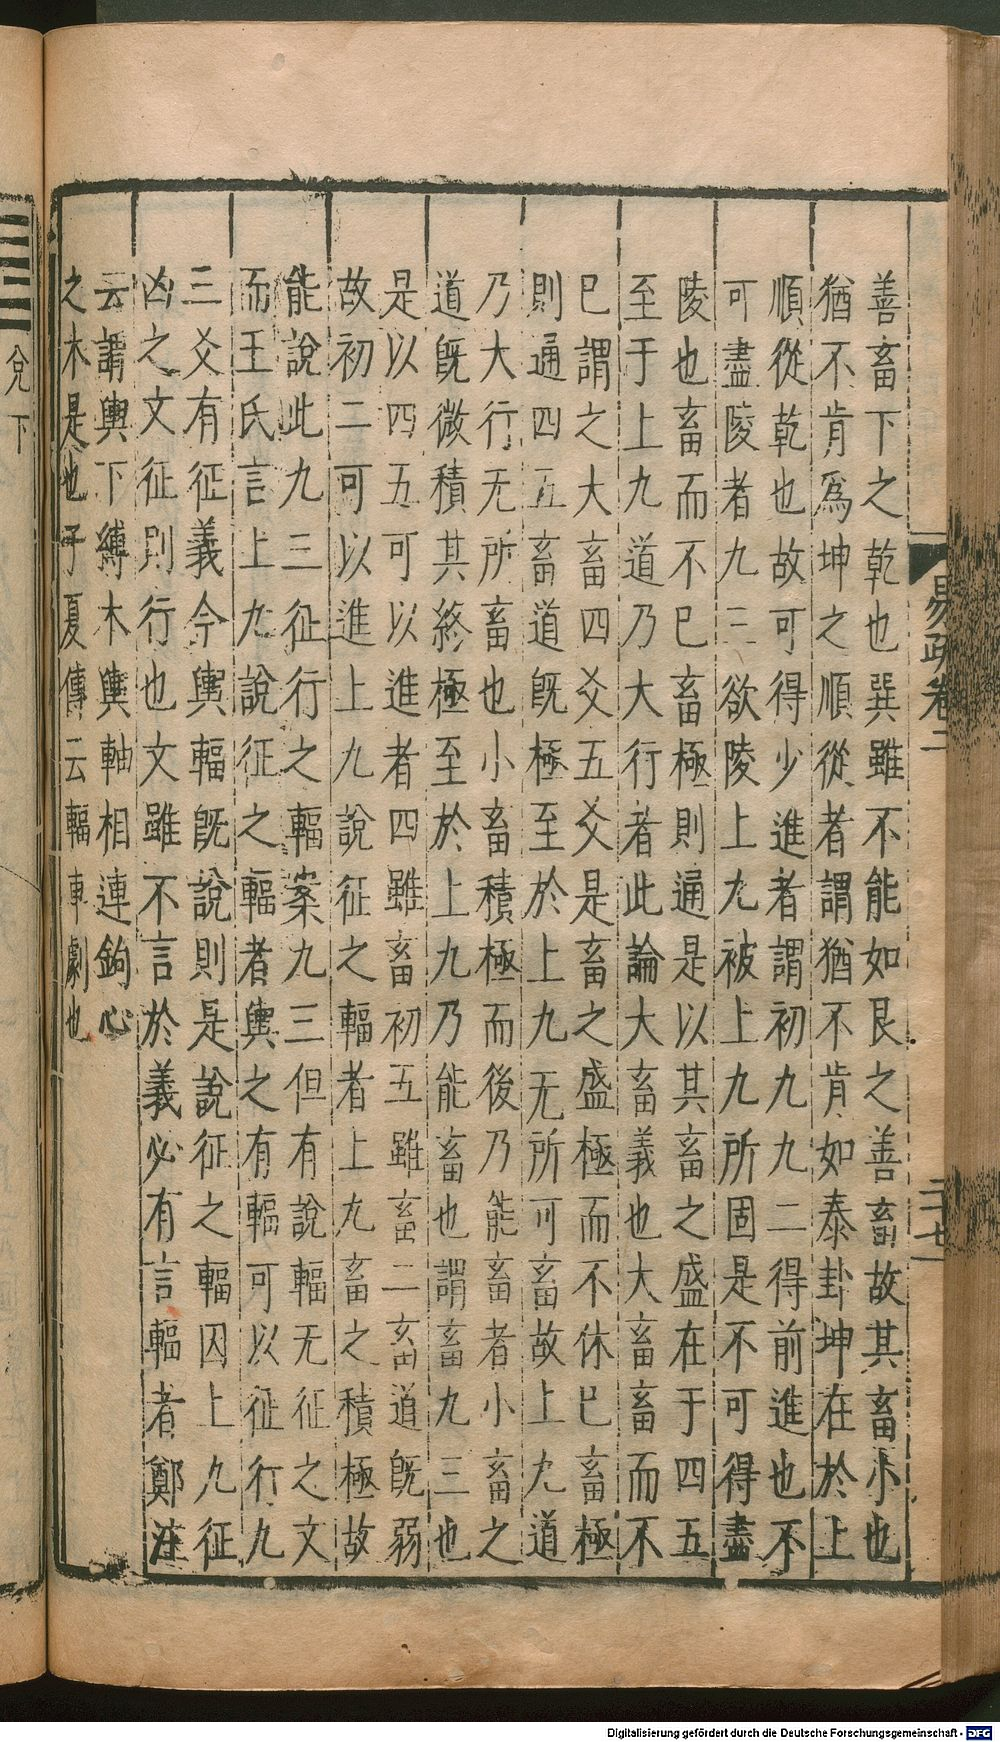 善畜下之乾也巽雖不能如艮之善畜故其畜小也
猶不肯爲坤之順從者謂猶不肯如泰卦坤在於上
順從乾也故可得少進者謂初九九二得前進也不
可盡陵者九三欲陵上九被上九所固是不可得盡
陵也畜而不已畜極則通是以其畜之盛在于四五
至于上九道乃大行者此論大畜義也大畜畜而不
已謂之大畜四爻五爻是畜之盛極而不休已畜極
則通四五畜道旣極至於上九无所可畜故上九道
乃大行无所畜也小畜積極而後乃能畜者小畜之
道旣微積其終極至於上九乃能畜也謂畜九三也
是以四五可以進者四雖畜初五雖畜二畜道旣弱
故初二可以進上九說征之輻者上九畜之積極故
能說此九三征行之輻案九三但有說輻无征之文
而王氏言上九說征之輻者輿之有輻可以征行九
三爻有征義今輿輻旣說則是說征之輻因上九征
凶之文征則行也文雖不言於義必有言輻者鄭注
云謂輿下縛木輿軸相連鉤心
之木是也子夏傳云輻車劇也
易疏卷二
二十七
兌下
Digitalisierung gefördert durch die Deutsche Forschungsgemeinschaft - DFG